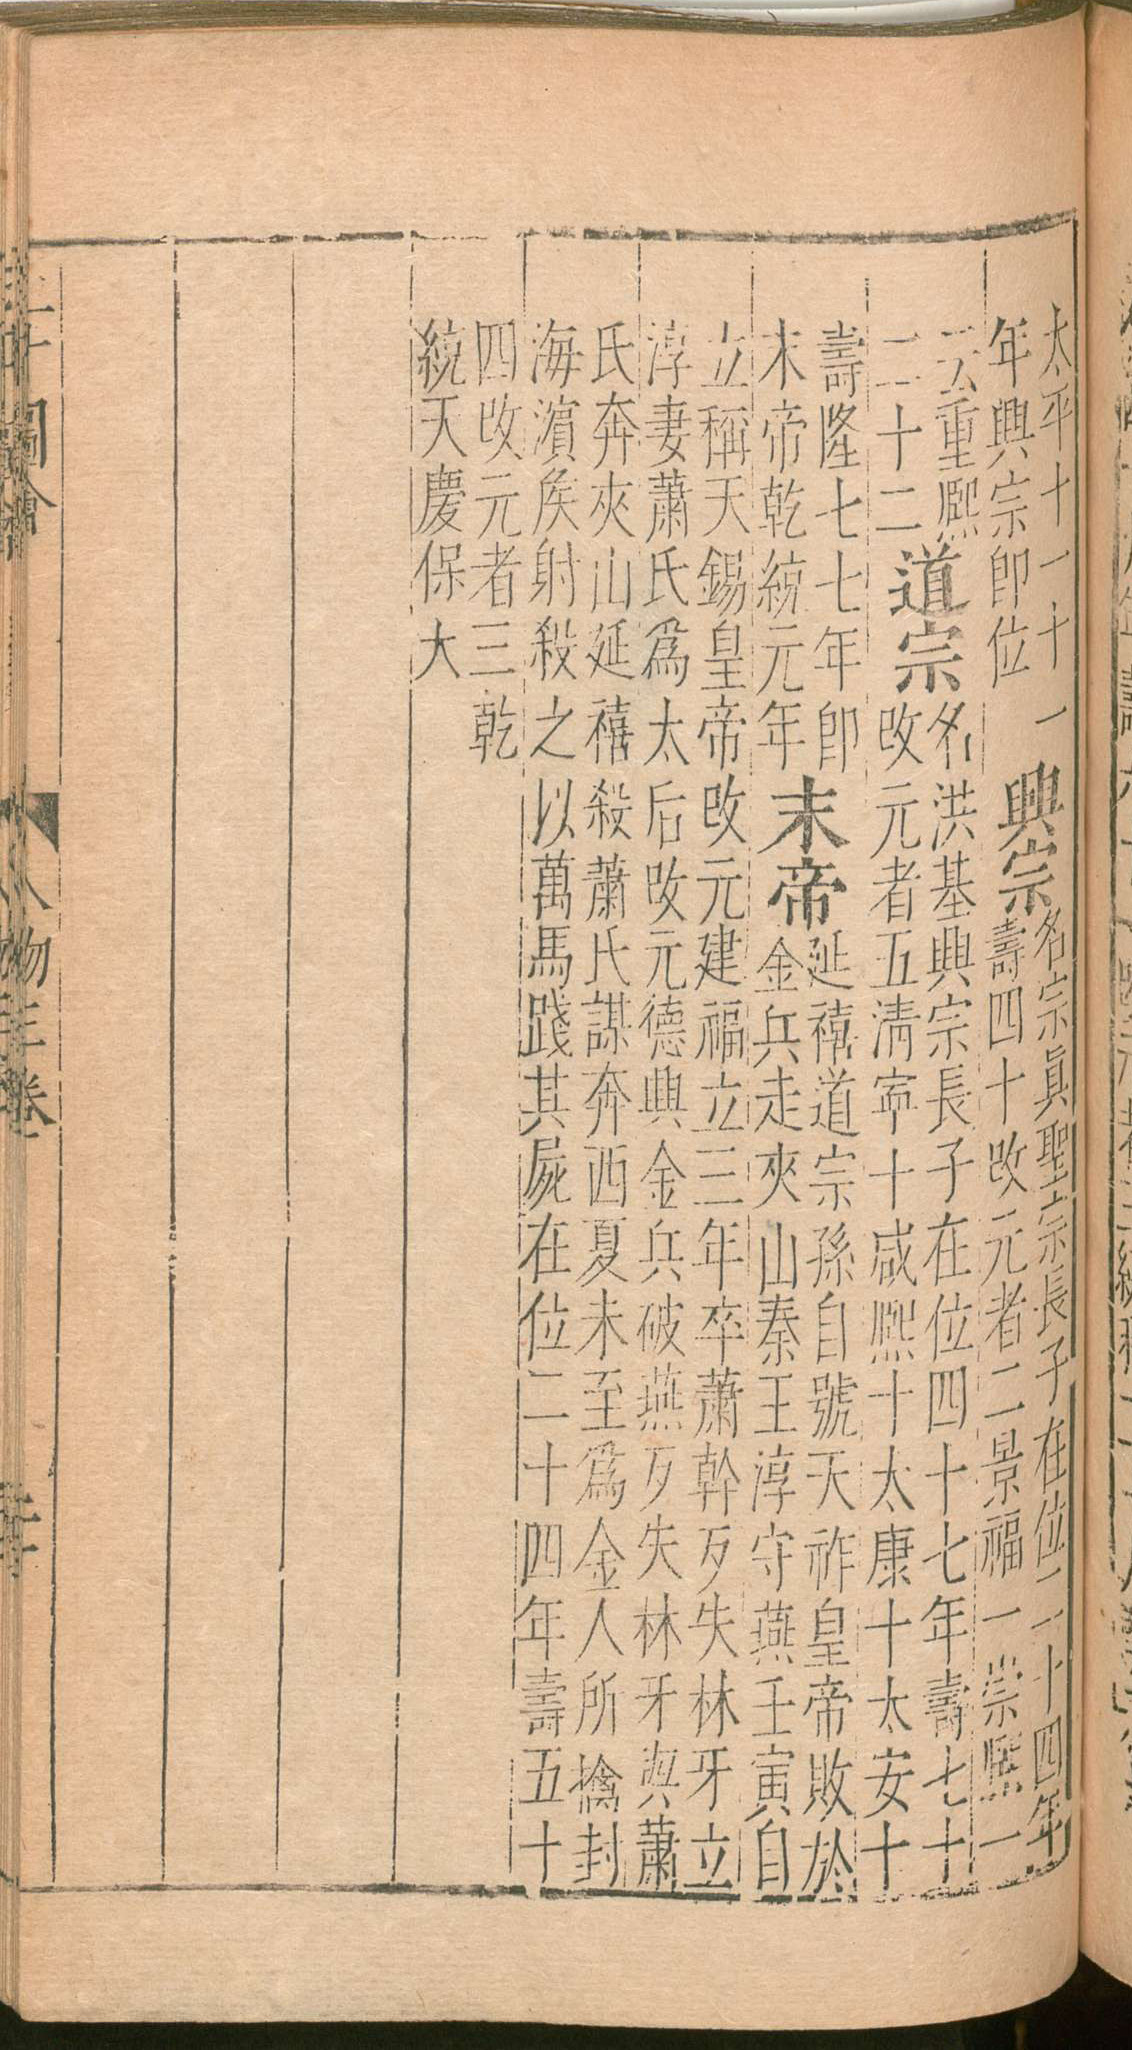 太平十一十一
年興宗即位
興宗
名宗眞聖宗長子在位二十四年
壽四十改元者二景福一崇熙一
云重熙
二十二
道宗
名洪基興宗長子在位四十七年壽七十
改元者五清寧十咸熙十太康十太安十
壽隆七七年即
末帝乾統元年
末帝
延禧道宗孫自號天祚皇帝敗於
金兵走夾山秦王淳守燕壬寅自
立稱天錫皇帝改元建福立三年卒蕭幹歹失林牙立
淳妻蕭氏爲太后改元德興金兵破燕歹失林牙與蕭
氏奔夾山延禧殺蕭氏謀奔西夏未至爲金人所擒封
海濵侯射殺之以萬馬踐其屍在位二十四年壽五十
四改元者三乾
統天慶保大
人物三卷